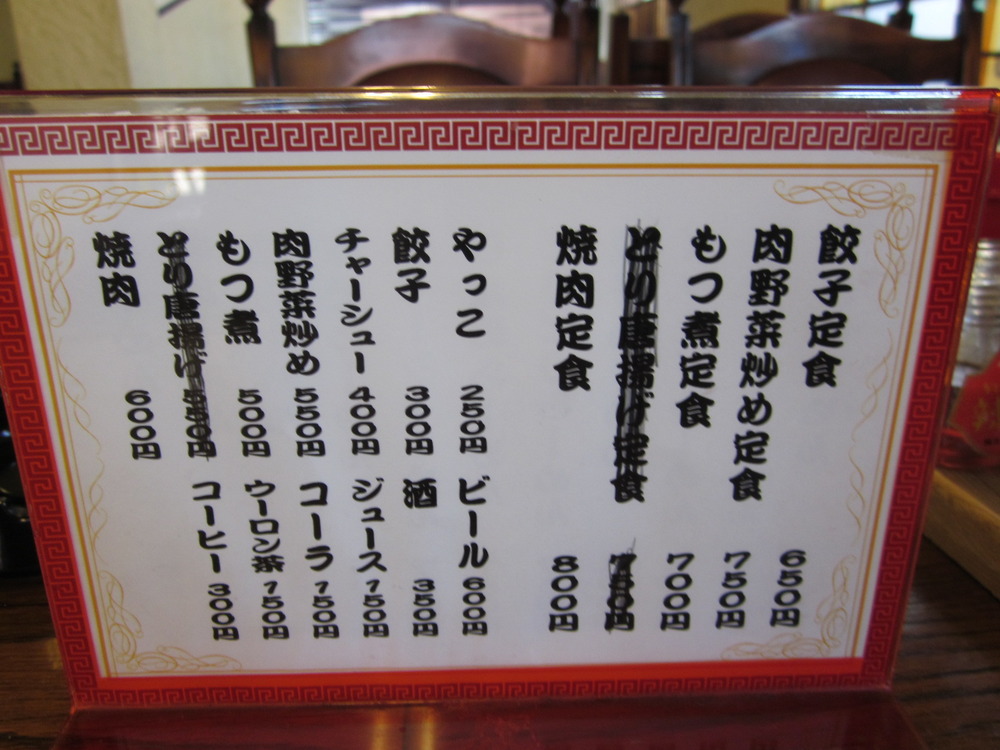 餃子定食 650円
肉野菜炒め定食 750円
もつ煮定食 700円
とり唐揚げ定食 750円
焼肉定食 800円
やっこ 250円
餃子 300円
チャーシュー 400円
肉野菜炒め 550円
もつ煮 500円
とり唐揚げ 550円
焼肉 600円
ビール 600円
酒 350円
ジュース 150円
コーラ 150円
ウーロン茶 150円
コーヒー 300円